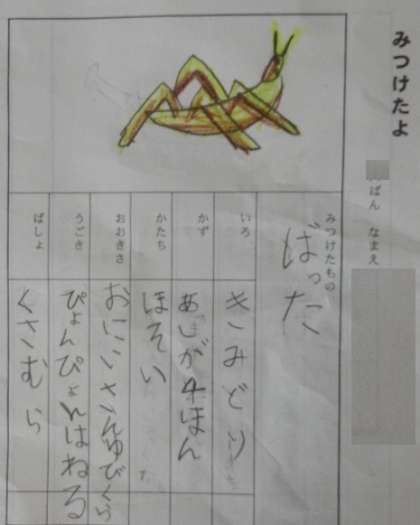 みつけたよ
ばん なまえ
みつけたもの
ばった
いろ
きみどり
かず
あしが4ほん
かたち
ほそい
おおきさ
おにいさんゆびくら
うごき
ぴょんぴょんはねる
ばしょ
くさむら